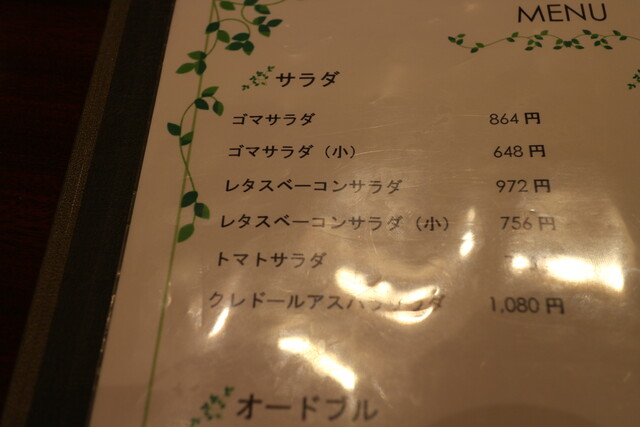 MENU
サラダ
ゴマサラダ 864 円
ゴマサラダ（小） 648 円
レタスベーコンサラダ 972 円
レタスベーコンサラダ（小） 756 円
トマトサラダ
クレドールアスパラサラダ 1,080 円
オードブル